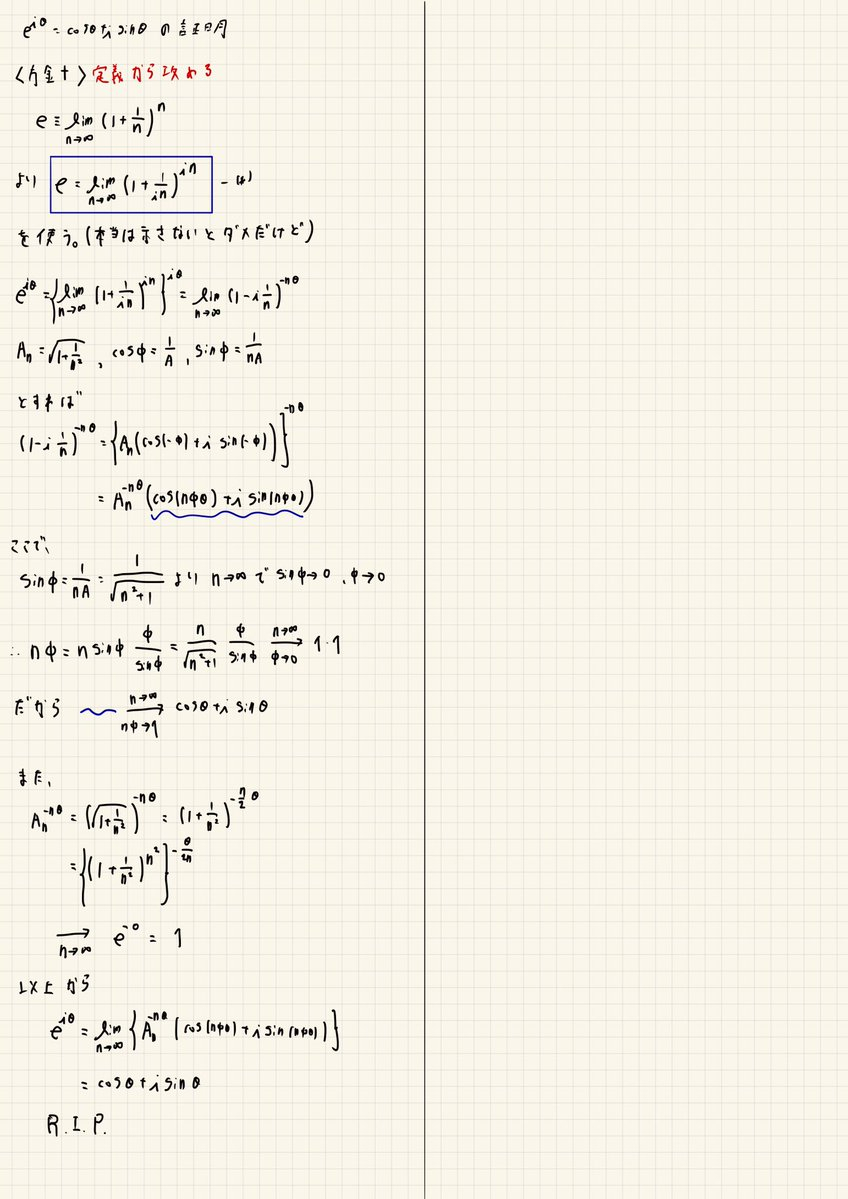 e^{iθ} = cosθ + i sinθ の証明
<方針> 定義から攻める
e ≡ lim_{n→∞} (1 + 1/n)^n
より e = lim_{n→∞} (1 + 1/(in))^{in} - (*)
を使う。(本当は示さないとダメだけど)
e^{iθ} = {lim_{n→∞} (1 + 1/(in))^{in}}^{iθ} = lim_{n→∞} (1 - i 1/n)^{-nθ}
A_n = √(1 + 1/n²) , cosφ = 1/A , sinφ = 1/(nA)
とすれば
(1 - i 1/n)^{-nθ} = {A_n(cos(-φ) + i sin(-φ))}^{-nθ}
= A_n^{-nθ} (cos(nφθ) + i sin(nφθ))
ここで、
sinφ = 1/(nA) = 1/√(n²+1) より n→∞ で sinφ→0 , φ→0
∴ nφ = n sinφ φ/sinφ = n/√(n²+1) φ/sinφ →(n→∞, φ→0) 1・1
だから 〜 →(n→∞, nφ→1) cosθ + i sinθ
また、
A_n^{-nθ} = (√(1 + 1/n²))^{-nθ} = (1 + 1/n²)^{-(n/2)θ}
= {(1 + 1/n²)^{n²}}^{-θ/(2n)}
→(n→∞) e^{-0} = 1
以上から
e^{iθ} = lim_{n→∞} {A_n^{-nθ} (cos(nφθ) + i sin(nφθ))}
= cosθ + i sinθ
R.I.P.